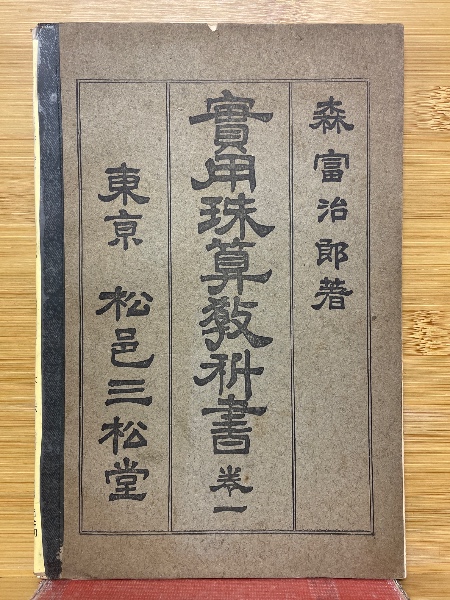 森富治郎著
實用珠算教科書 卷一
東京 松邑三松堂